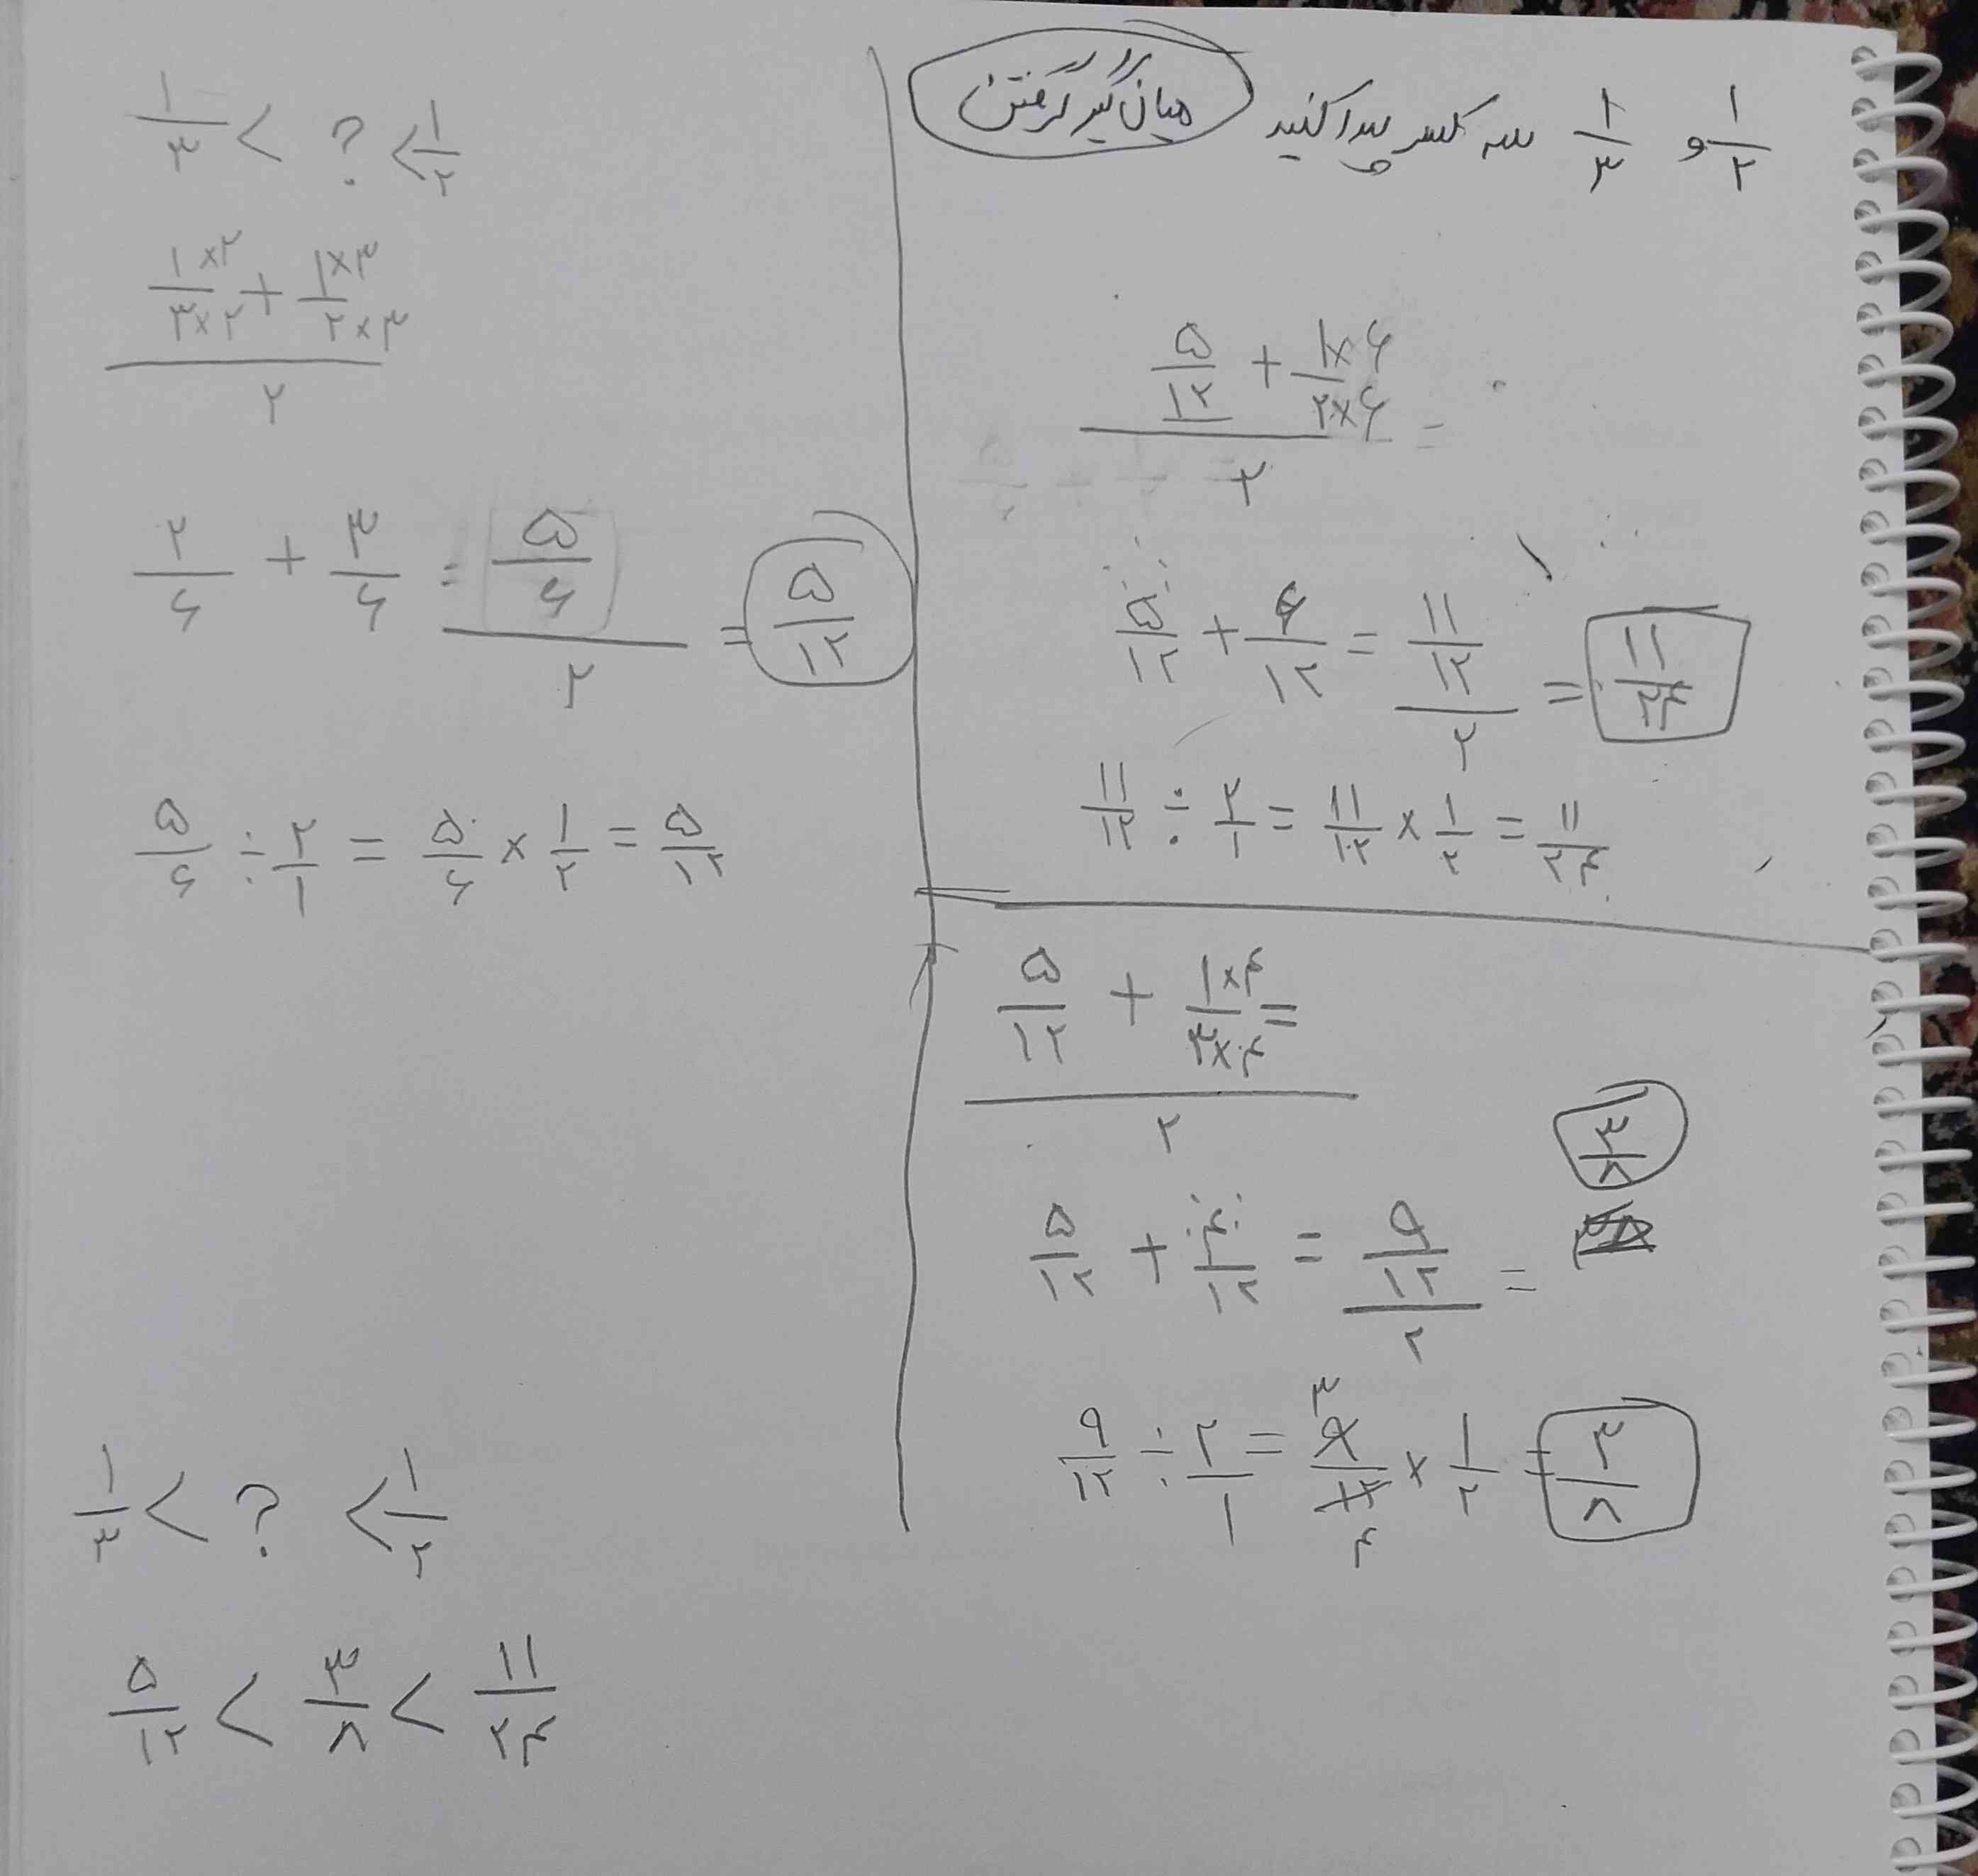 ۱/۲ و ۱/۳ سه کسر پیدا کنید میانگیر گرفتن
(۵/۱۲ + ۱×۶/۲×۶)/۲ =
۵/۱۲ + ۶/۱۲ = (۱۱/۱۲)/۲ = ۱۱/۲۴
۱۱/۱۲ ÷ ۲/۱ = ۱۱/۱۲ × ۱/۲ = ۱۱/۲۴
(۵/۱۲ + ۱×۴/۳×۴ =)/۲
۳/۸
۵/۱۲ + ۴/۱۲ = (۹/۱۲)/۲ =
۹/۱۲ ÷ ۲/۱ = ۹/۱۲ ۳/۴ × ۱/۲ = ۳/۸
۱/۳ < ? < ۱/۲
(۱×۲/۳×۲ + ۱×۳/۲×۳)/۲
۲/۶ + ۳/۶ = (۵/۶)/۲ = ۵/۱۲
۵/۶ ÷ ۲/۱ = ۵/۶ × ۱/۲ = ۵/۱۲
۱/۳ < ? < ۱/۲
۵/۱۲ < ۳/۸ < ۱۱/۲۴